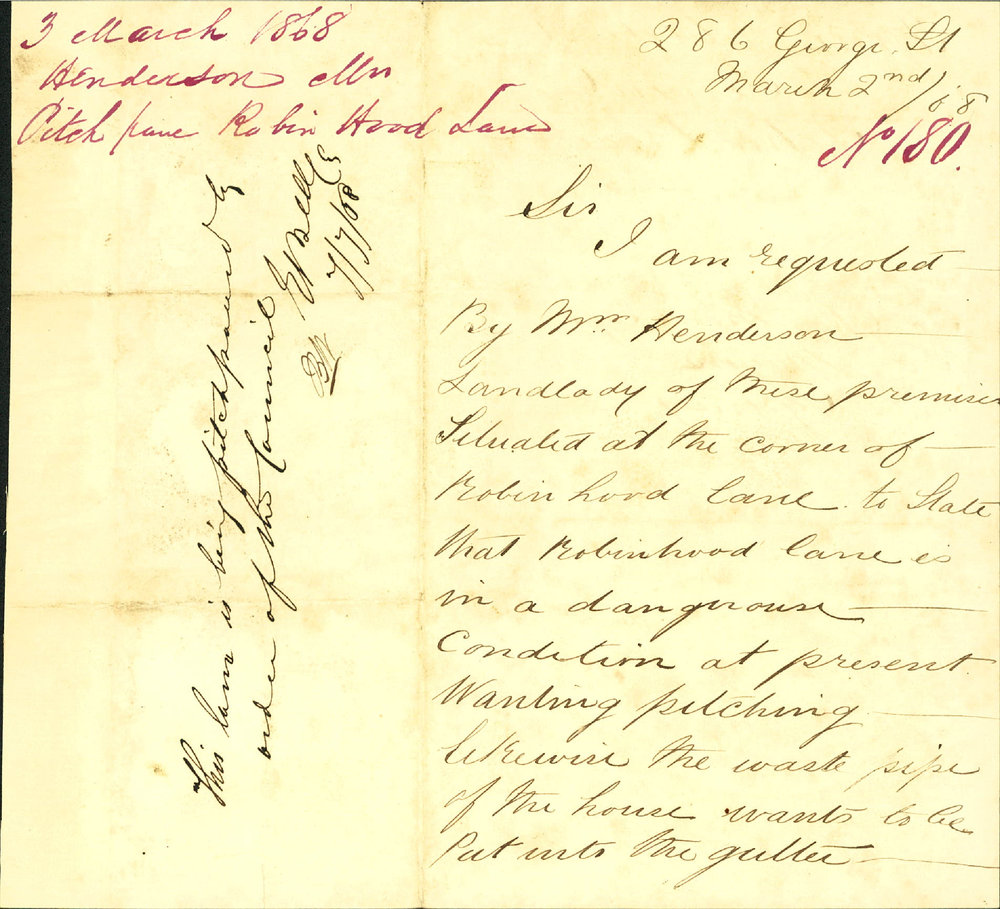 3 March 1868
Henderson Mrs
Pitch pave Robin Hood Lane
This lane is being pitchpaved by
order of the Council
EBell CE
7/7/68
286 George St
March 2nd/68
No 180.
Sir
I am requested
By Mrs Henderson
Landlady of these premises
Situated at the corner of
Robin hood lane to State
that Robinhood lane is
in a dangerouse
Condition at present
Wanting pitching
likewise the waste pipe
of the house wants to be
Put into the gutter